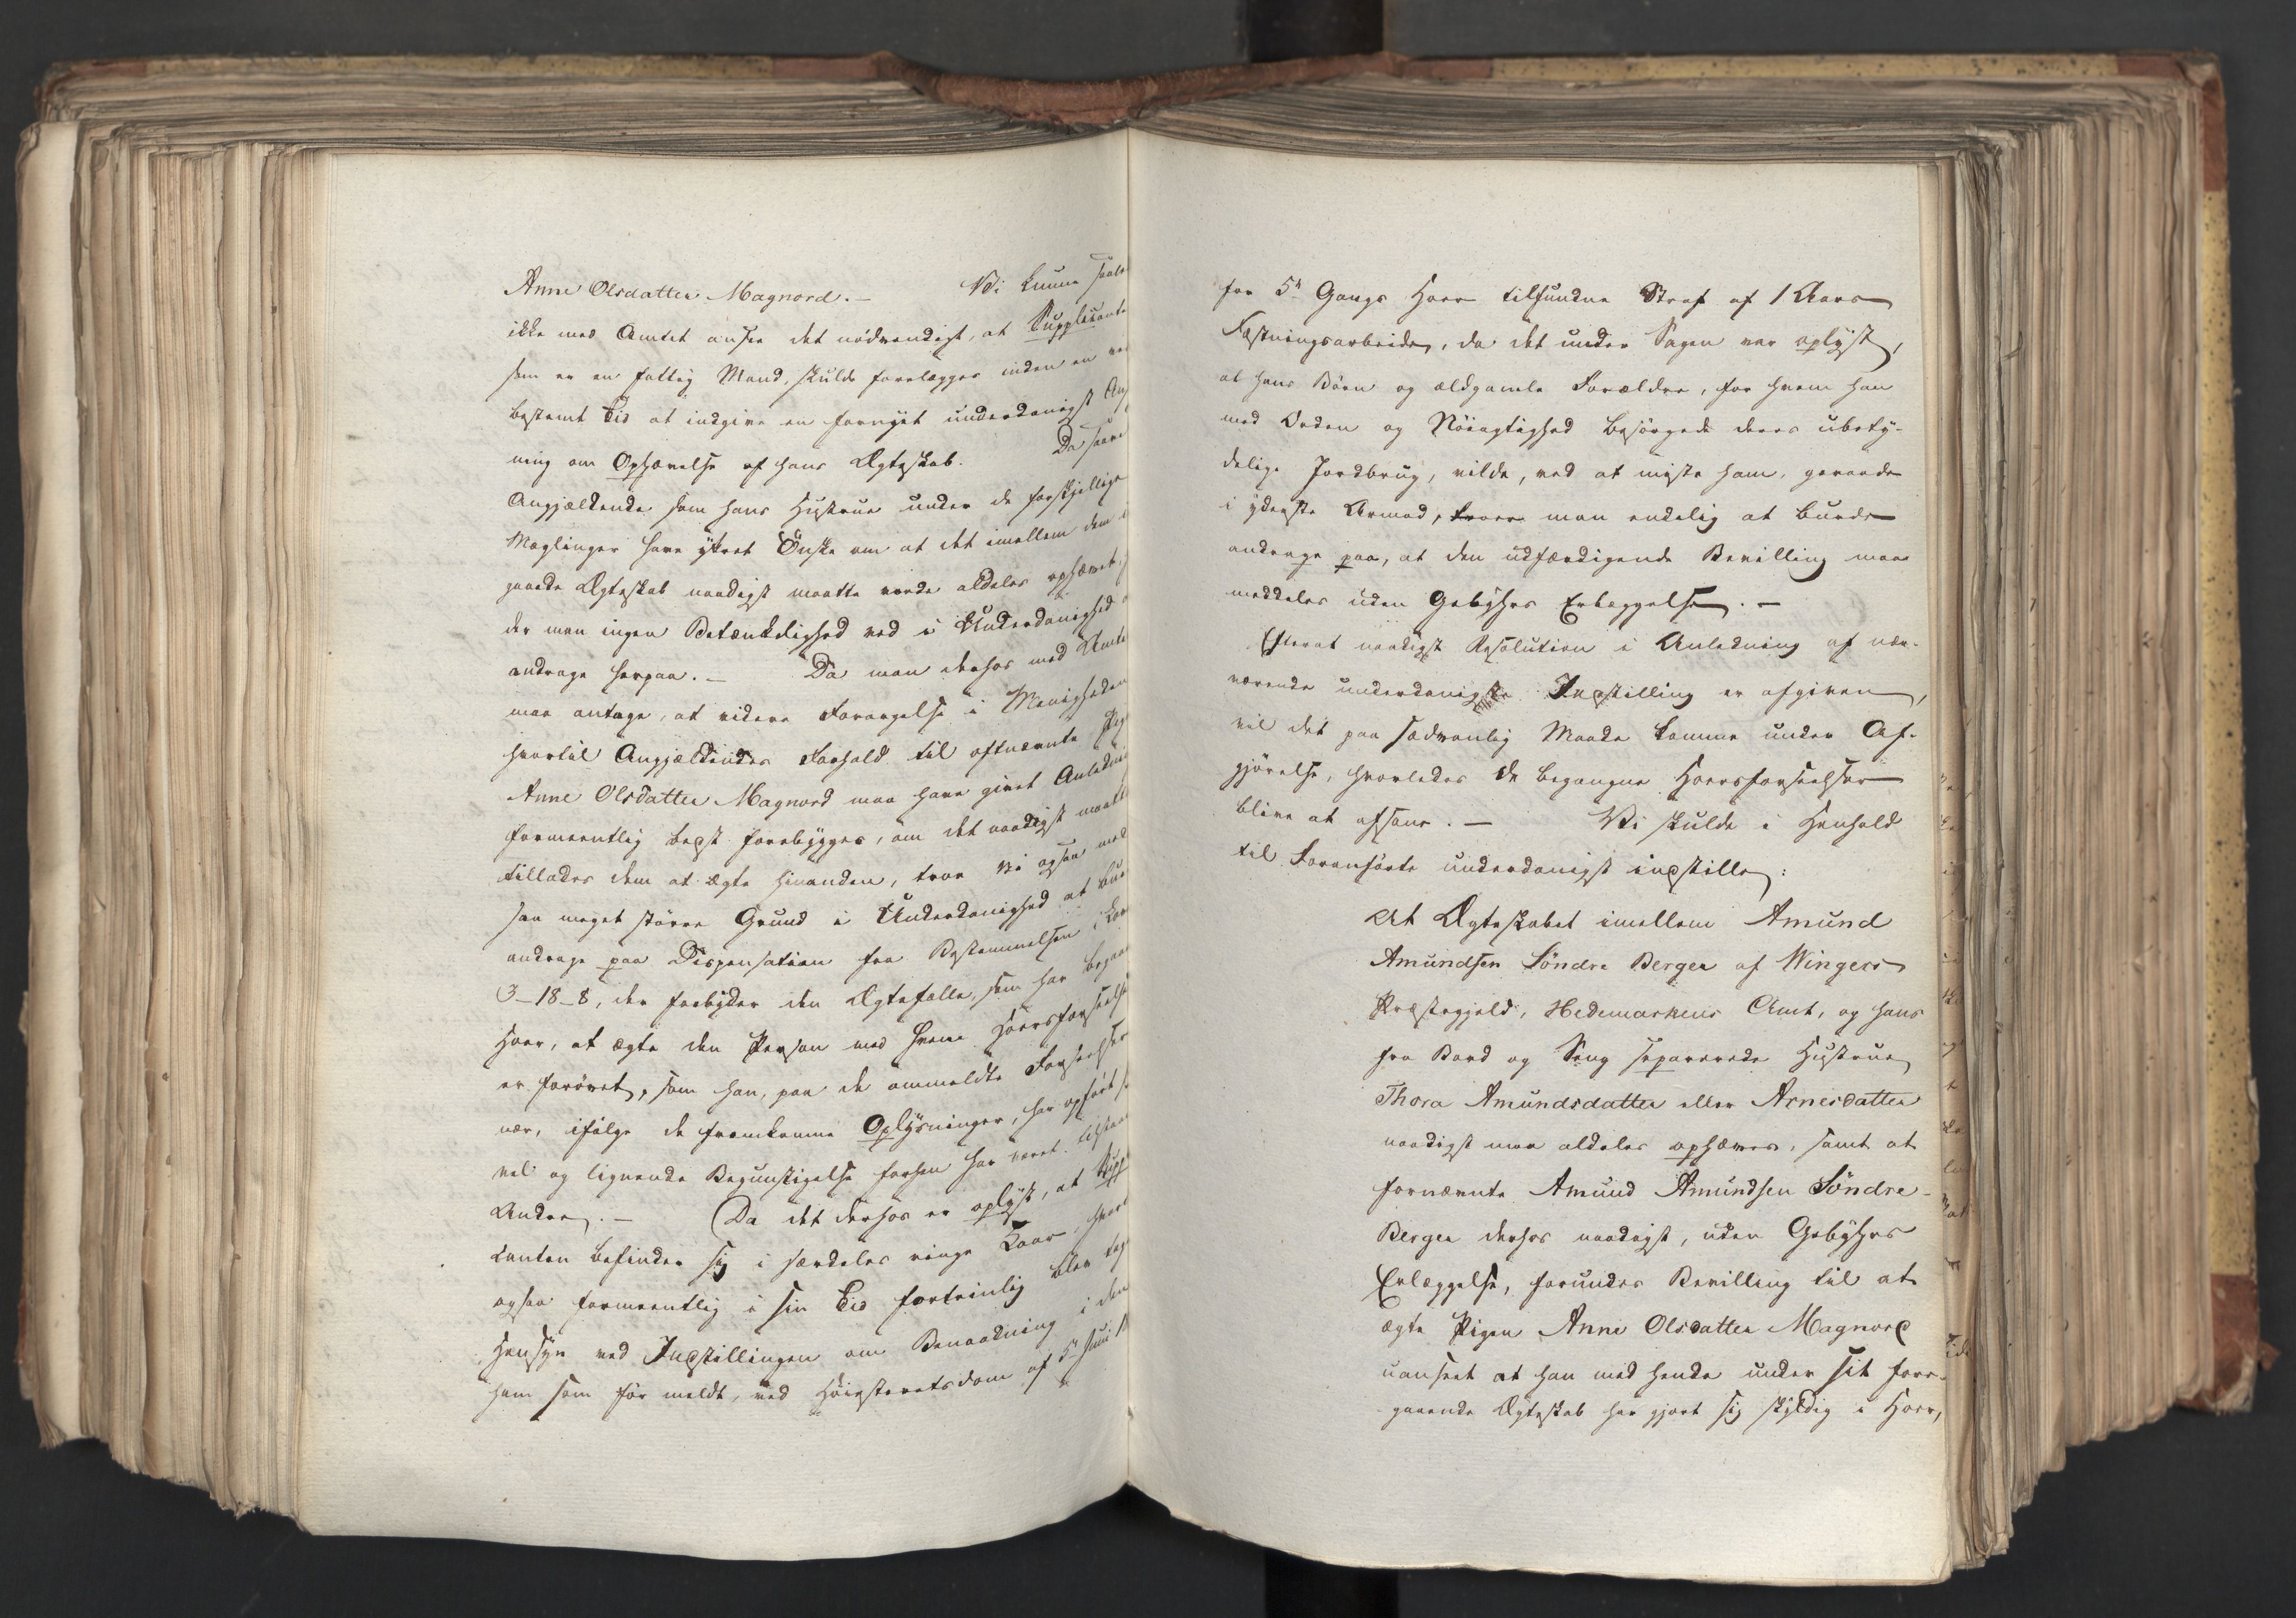 Anne Olsdatter Magnord. — Vi kunne saale
ikke med Amtet ansee det nødvendigt, at Supplicante
som er en fattig Mand, skulde forelægges inden en vis
bestemt Tid at indgive en fornyet underdanigst An
ning om Ophævelse af hans Ægteskab. Da saave
Angjældende som hans Hustrue under de forskjellige
Mæglinger have yttret Ønske om at det imellem dem i
gaaede Ægteskab naadigst maatte vorde aldeles ophævet,
der man ingen Betænkelighed ved i Underdanighed
andrage herpaa. — Da man derhos med Amte
maa antage, at videre Forargelse i Menigheden
hvortil Angjældendes Forhold til oftnævnte Pig
Anne Olsdatter Magnord maa have givet Anledni
formeentlig best forebygges, om det naadigst maatt
tillades dem at ægte hinanden, troe Vi ogsaa med
saa meget større Grund i Underdanighed at bur
andrage paa Dispensation fra Bestemmelsen i Lov
3-18-8, der forbyder den Ægtefælle, som har begaa
Hoer, at ægte den Person med hvem Hoersforseelse
er forøvet, som han, paa de ommeldte Forseelser
nær, ifølge de fremkomne Oplysninger, har opført s
vel og lignende Begunstigelse forhen har været tilstaa
Andre. — Da det derhos er oplyst, at Supp
kanten befinder sig i særdeles ringe Kaar, hvort
ogsaa formeentlig i sin Tid fortrinlig blev tag
Hensyn ved Indstillingen om Benaadning i den
ham som før meldt, ved Høiesteretsdom af 5te Juni 1
for 5te Gangs Hoer tilfundne Straf af 1 Aars
Fæstningsarbeide, da det under Sagen var oplyst,
at hans Børn og ældgamle Forældre, for hvem han
med Orden og Nøiagtighed besørgede deres ubety-
delige Jordbrug, vilde, ved at miste ham, geraade
i yderste Armod, troer man endelig at burde
andrage paa, at den udfærdigende Bevilling maa
meddeles uden Gebyhrs Erlæggelse. —
Efterat naadigst Resolution i Anledning af nær-
værende underdanigste Indstilling er afgiven,
vil det paa sædvanlig Maade komme under Af-
gjørelse, hvorledes de begangne Hoersforseelser
blive at afsone. — Vi skulde i Henhold
til Foranførte underdanigst indstille:
At Ægteskabet imellem Amund
Amundsen Søndre Berger af Wingers
Præstegjeld, Hedemarkens Amt, og hans
fra Bord og Seng separerede Hustrue
Thora Amundsdatter eller Arnesdatter
naadigst maa aldeles ophæves, samt at
fornævnte Amund Amundsen Søndre-
Berger derhos naadigst, uden Gebyhrs
Erlæggelse, forundes Bevilling til at
ægte Pigen Anne Olsdatter Magnord
uanseet at han med hende under sit fore-
gaaende Ægteskab har gjort sig skyldig i Hoer,